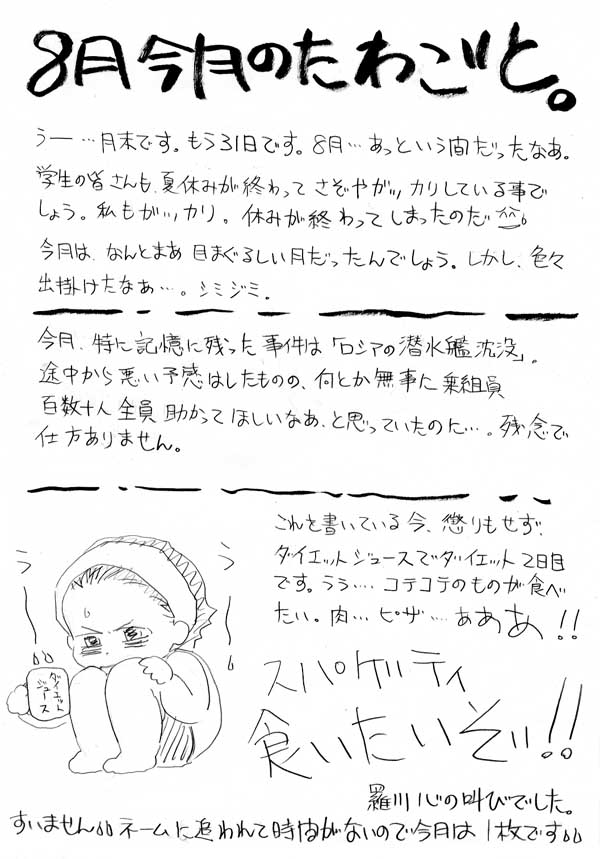 8月今月のたわごと。
うー…月末です。もう31日です。8月…あっという間だったなあ。
学生の皆さんも、夏休みが終わってさぞやガッカリしている事で
しょう。私もガッカリ。休みが終わってしまったのだ^^;
今月は、なんとまあ目まぐるしい月だったんでしょう。しかし、色々
出掛けたなあ…。シミジミ。
今月、特に記憶に残った事件は「ロシアの潜水艦沈没」。
途中から悪い予感はしたものの、何とか無事に乗組員
百数十人全員助かってほしいなあ、と思っていたのに…。残念で
仕方ありません。
これを書いている今、懲りもせず、
ダイエットジュースでダイエット2日目
です。うう…コテコテのものが食べ
たい。肉…ピザ…あああ!!
うー
うー
ダイエット
ジュース
スパゲルティ
食いたいぞぃ!!
羅川心の叫びでした。
すいません ネームに追われて時間がないので今月は1枚です